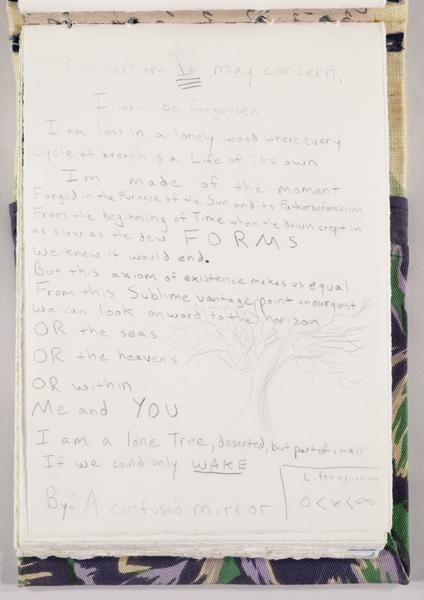 To whom It may concern,
I will be forgotten
I am lost in a lonely wood where every
cycle of breath is a Life of its own
I'm made of the moment
Forged in the Furnace of the Sun and its Father before him
From the beginning of Time when the dawn crept in
as slow as the dew FORMS
We knew it would end.
But this axiom of existence makes us equal
From this Sublime vantage point on our quest
We can look onward to the horizon
OR the seas
OR the heavens
OR within
Me and YOU
I am a lone Tree, deserted, but part of it all
If we could only WAKE
By: A confused mirror
Lifes equation
0<x<∞